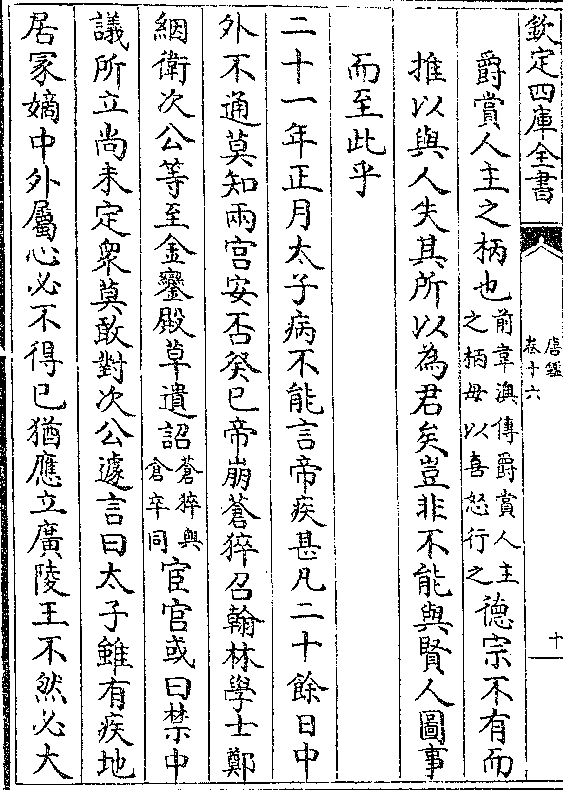 欽定四庫全書
唐鑑
卷十六
十
爵賞人主之柄也前韋澳傳爵賞人主之柄毋以喜怒行之德宗不有而
推以與人失其所以為君矣豈非不能與賢人圖事
而至此乎
二十一年正月太子病不能言帝疾甚凡二十餘日中
外不通莫知兩宮安否癸巳帝崩蒼猝召翰林學士鄭
絪衛次公等至金鑾殿草遺詔蒼猝與倉卒同宦官或曰禁中
議所立尚未定衆莫敢對次公遽言曰太子雖有疾地
居冢嫡中外屬心必不得已猶應立廣陵王不然必大